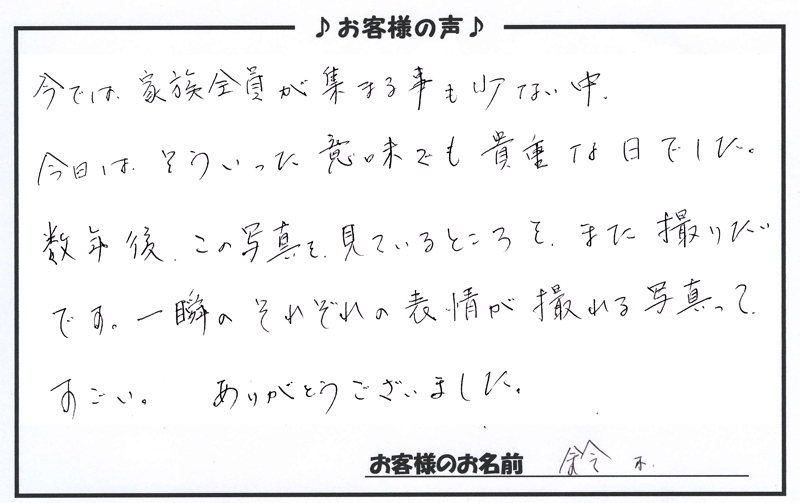 ♪お客様の声♪
今では、家族全員が集まる事も少ない中、
今日は、そういった意味でも貴重な日でした。
数年後、この写真を、見ているところを、また撮りたい
です。一瞬のそれぞれの表情が撮れる写真って、
すごい。 ありがとうございました。
お客様のお名前 鈴木